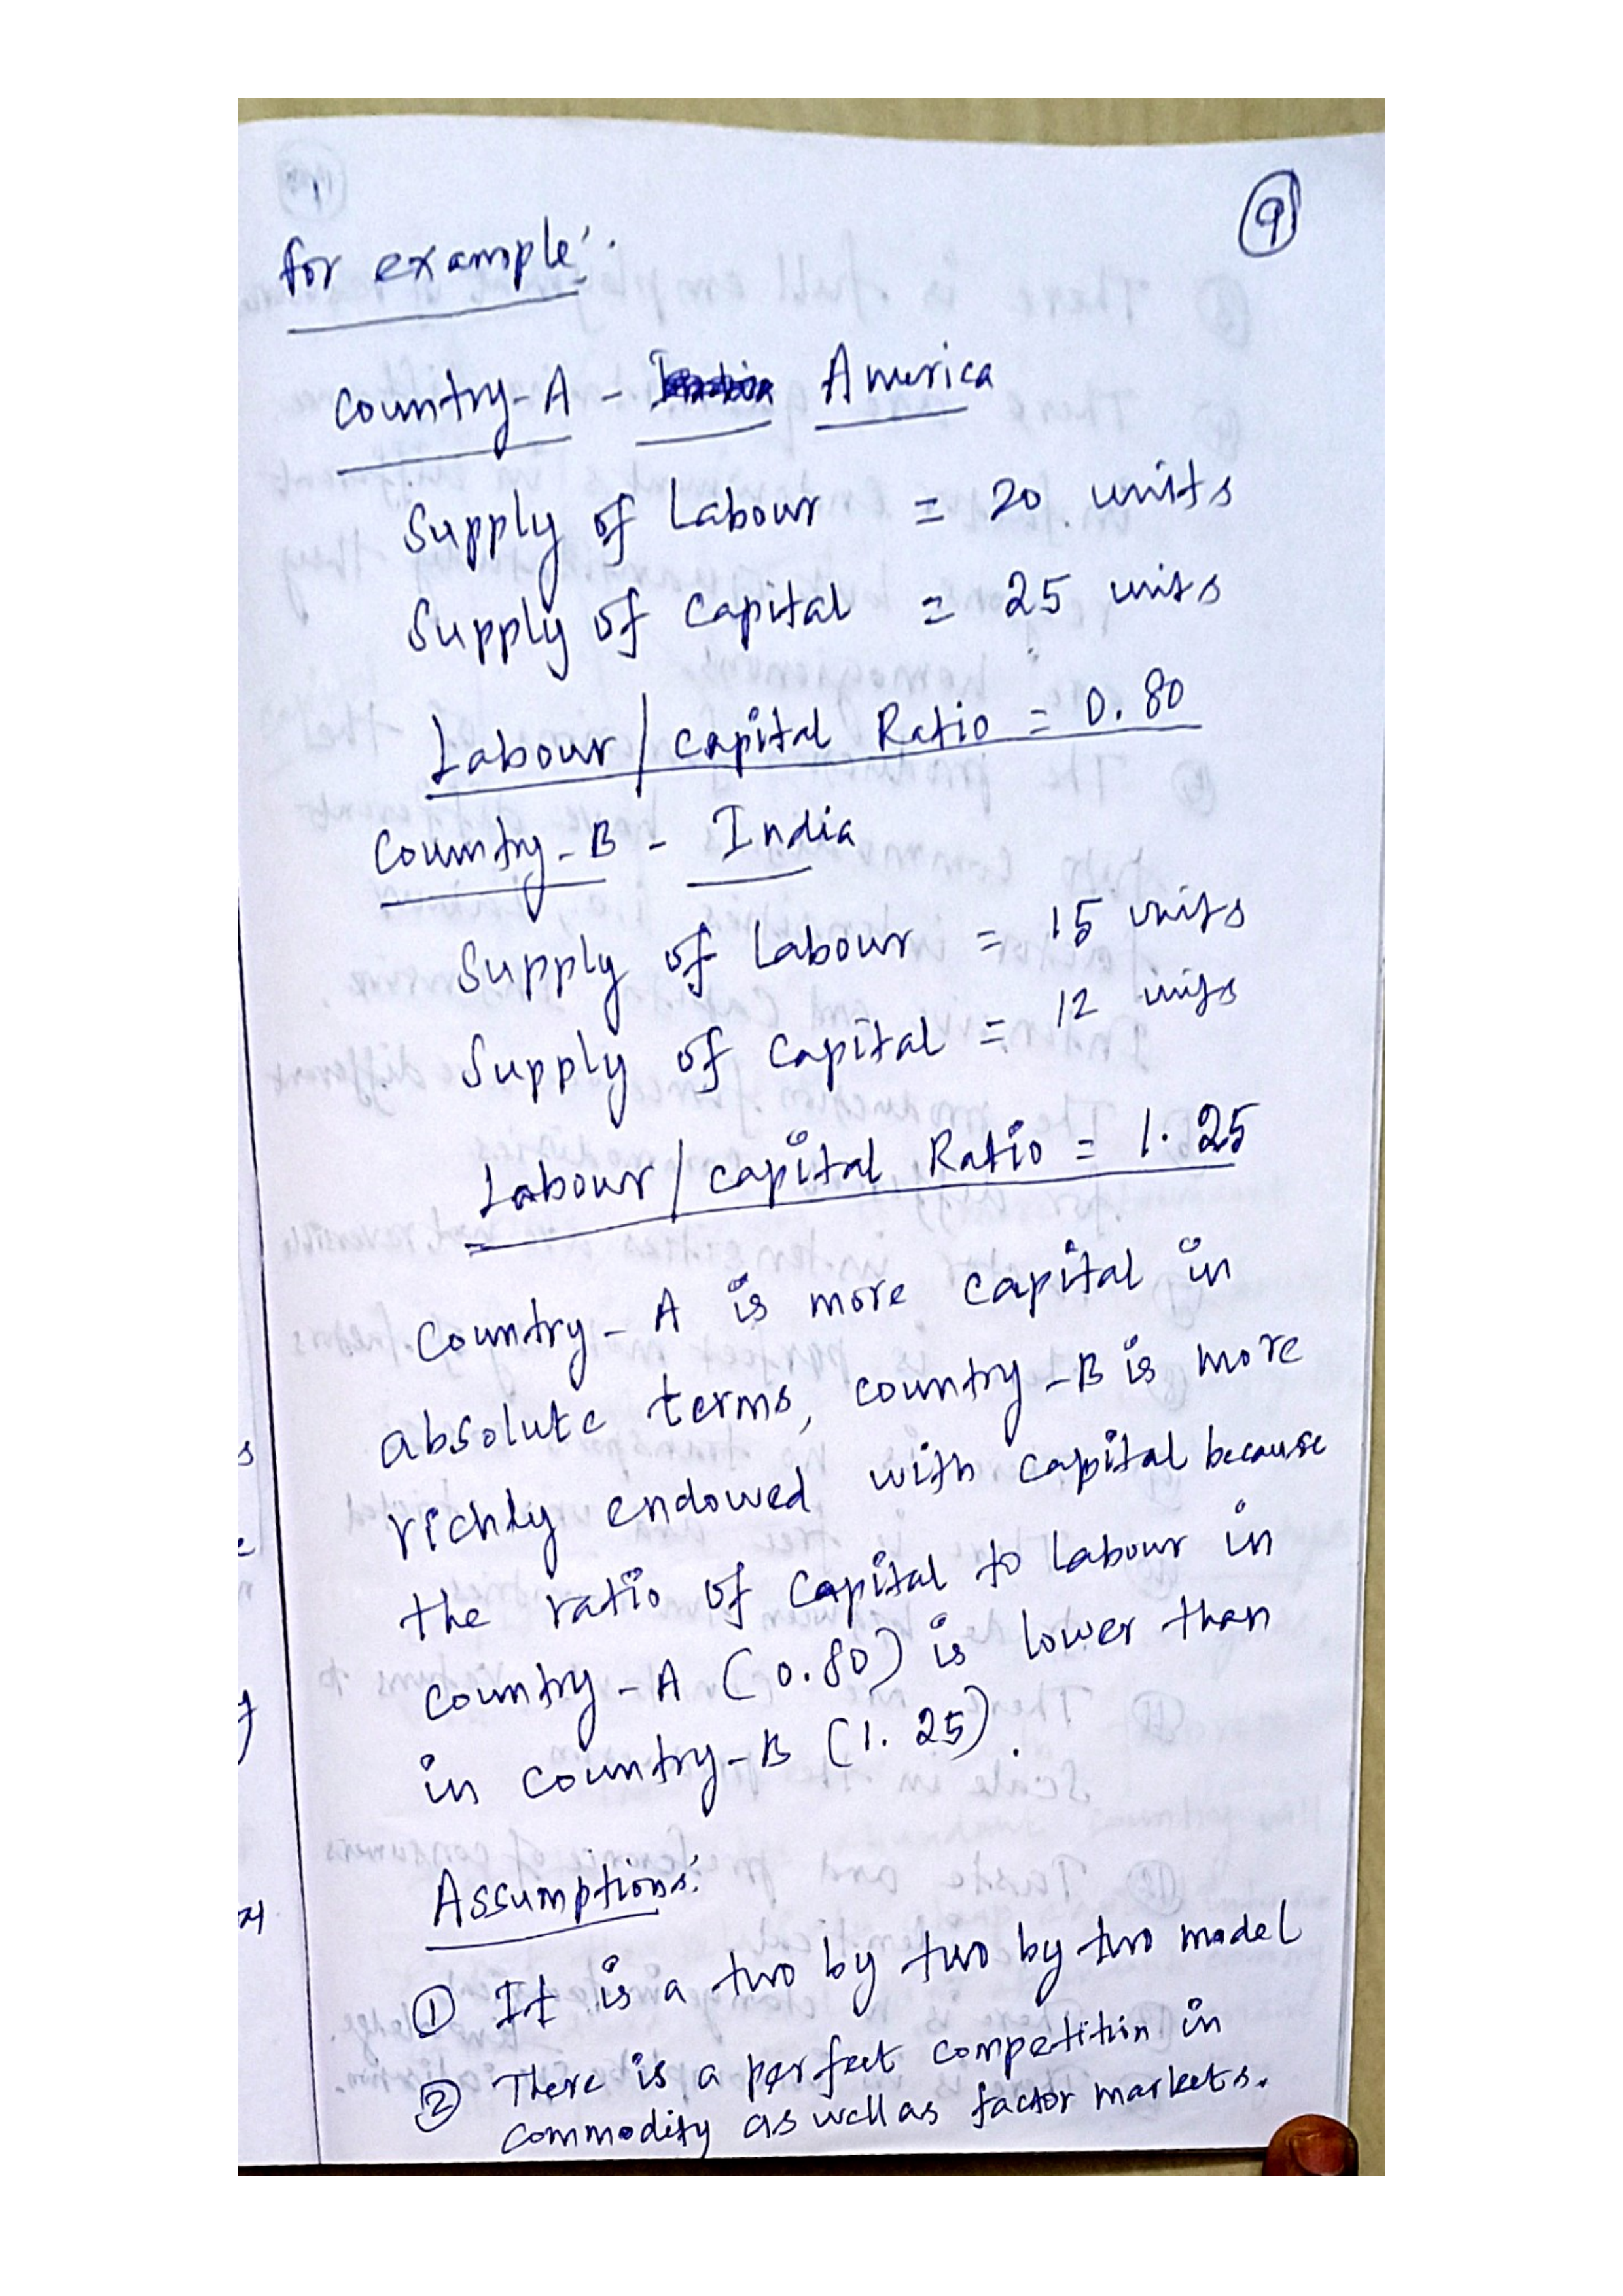 9
for example:
Country-A - America
Supply of Labour = 20 units
Supply of capital = 25 units
Labour/capital Ratio = 0.80
Country-B - India
Supply of Labour = 15 units
Supply of capital = 12 units
Labour/capital Ratio = 1.25
Country-A is more capital in
absolute terms, country-B is more
richly endowed with capital because
the ratio of capital to labour in
country-A (0.80) is lower than
in country-B (1.25).
Assumptions:
① It is a two by two by two model
② There is a perfect competition in
commodity as well as factor markets.